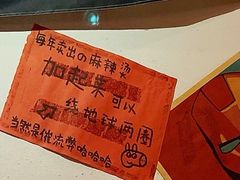 每年卖出の麻辣烫
加起来可以
绕地球两圈
当然是优乐美哈哈哈